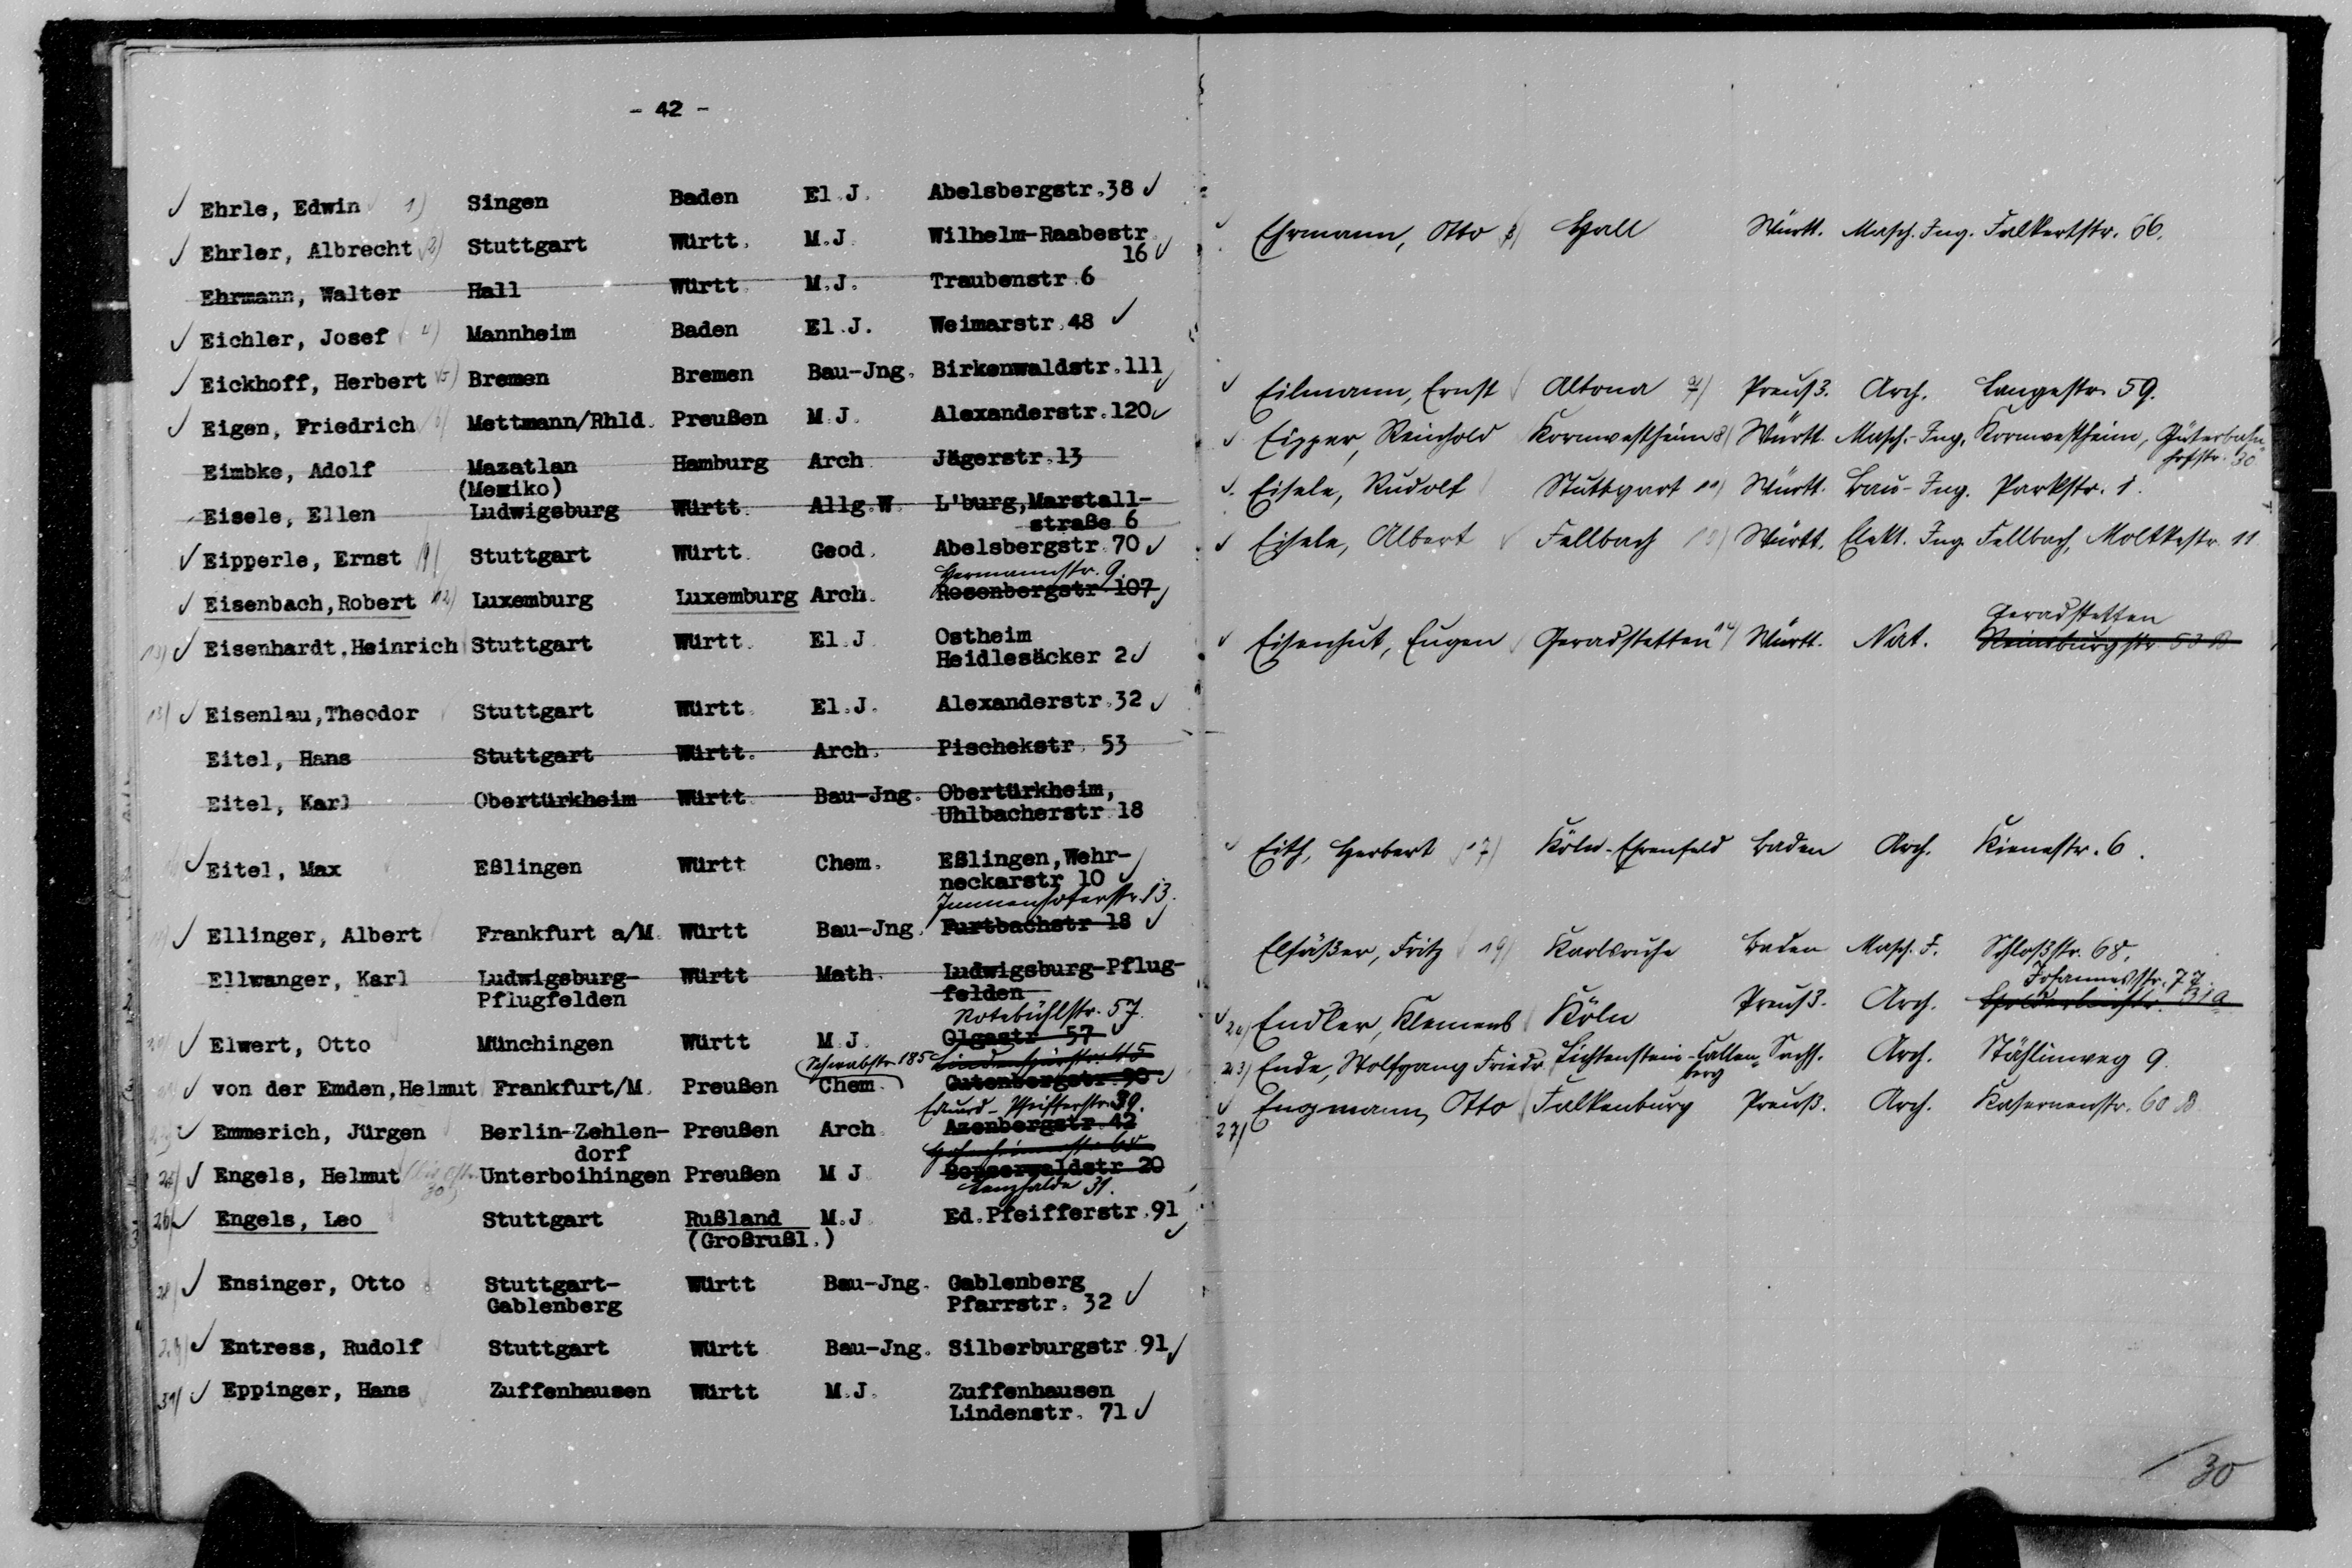 - 42 -
Ehrle, Edwin 1) Singen Baden El.J. Abelsbergstr.38
Ehrler, Albrecht 2) Stuttgart Württ. M.J. Wilhelm-Raabestr.
16
Ehrmann, Walter Hall Württ. M.J. Traubenstr.6
Eichler, Josef 4) Mannheim Baden El.J. Weimarstr.48
Eickhoff, Herbert 5) Bremen Bremen Bau-Jng. Birkenwaldstr.111
Eigen, Friedrich 6) Mettmann/Rhld. Preußen M.J. Alexanderstr.120
Eimbke, Adolf Mazatlan Hamburg Arch. Jägerstr.13
(Mexiko)
Eisele, Ellen Ludwigsburg Württ. Allg.W. L'burg,Marstall-
straße 6
Eipperle, Ernst 9) Stuttgart Württ. Geod. Abelsbergstr.70
Hermannstr. 9.
Eisenbach,Robert 12) Luxemburg Luxemburg Arch. Rosenbergstr.107
13) Eisenhardt.Heinrich Stuttgart Württ. El.J. Ostheim
Heidlesäcker 2
15) Eisenlau,Theodor Stuttgart Württ. El.J. Alexanderstr.32
Eitel, Hans Stuttgart Württ. Arch. Pischekstr. 53
Eitel, Karl Obertürkheim Württ. Bau-Jng. Obertürkheim,
Uhlbacherstr.18
Eitel, Max Eßlingen Württ. Chem. Eßlingen,Wehr-
neckarstr.10
Immenhoferstr. 13.
Ellinger, Albert Frankfurt a/M. Württ. Bau-Jng. Furtbachstr.18
Ellwanger, Karl Ludwigsburg- Württ. Math. Ludwigsburg-Pflug-
Pflugfelden felden
Rotebühlstr. 57.
Elwert, Otto Münchingen Württ. M.J. Olgastr. 57
Schwabstr. 185
von der Emden,Helmut Frankfurt/M. Preußen Chem. Gutenbergstr.90
Eduard-Pfeifferstr. 39.
Emmerich, Jürgen Berlin-Zehlen- Preußen Arch. Azenbergstr.42
dorf
25) Engels, Helmut Unterboihingen Preußen M.J. Bopserwaldstr.20
Lenzhalde 31.
26) Engels, Leo Stuttgart Rußland M.J. Ed.Pfeifferstr.91
(Großrußl.)
28) Ensinger, Otto Stuttgart- Württ. Bau-Jng. Gablenberg
Gablenberg Pfarrstr. 32
29) Entress, Rudolf Stuttgart Württ. Bau-Jng. Silberburgstr.91
31) Eppinger, Hans Zuffenhausen Württ. M.J. Zuffenhausen
Lindenstr. 71
Ehrmann, Otto 3) Hall Württ. Masch. Ing. Falkertstr. 66.
Eilmann, Ernst Altona 7) Preuß. Arch. Langestr. 59.
Eipper, Reinhold Kornwestheim 8) Württ. Masch.-Ing. Kornwestheim, Güterbahn-
hofstr. 30
Eisele, Rudolf Stuttgart 11) Württ. Bau-Ing. Parkstr. 1.
Eisele, Albert Fellbach 10) Württ. Elekt. Ing. Fellbach, Moltkestr. 11
Geradstetten
Eisenhut, Eugen Geradstetten 14) Württ. Nat. Reinsburgstr. 53 B
Eith, Herbert 17) Köln-Ehrenfeld Baden Arch. Kienestr. 6.
Elsäßer, Fritz 19) Karlsruhe Baden Masch. I. Schloßstr. 68.
Johannesstr. 77.
24) Endler, Klemens Köln Preuß. Arch. 31a
23) Ende, Wolfgang Friedr. Lichtenstein-Callen- Sachs. Arch. Stählinweg 9.
berg
27) Engmann, Otto Falkenburg Preuß. Arch. Kasernenstr. 60 B.
30